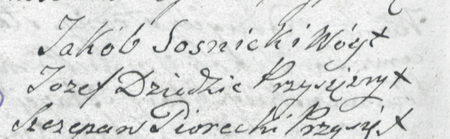 Jakób Sosnicki Wóyt
Jozef Dziedzic Przysiężny X
Szczepan Piorecki Przysię X